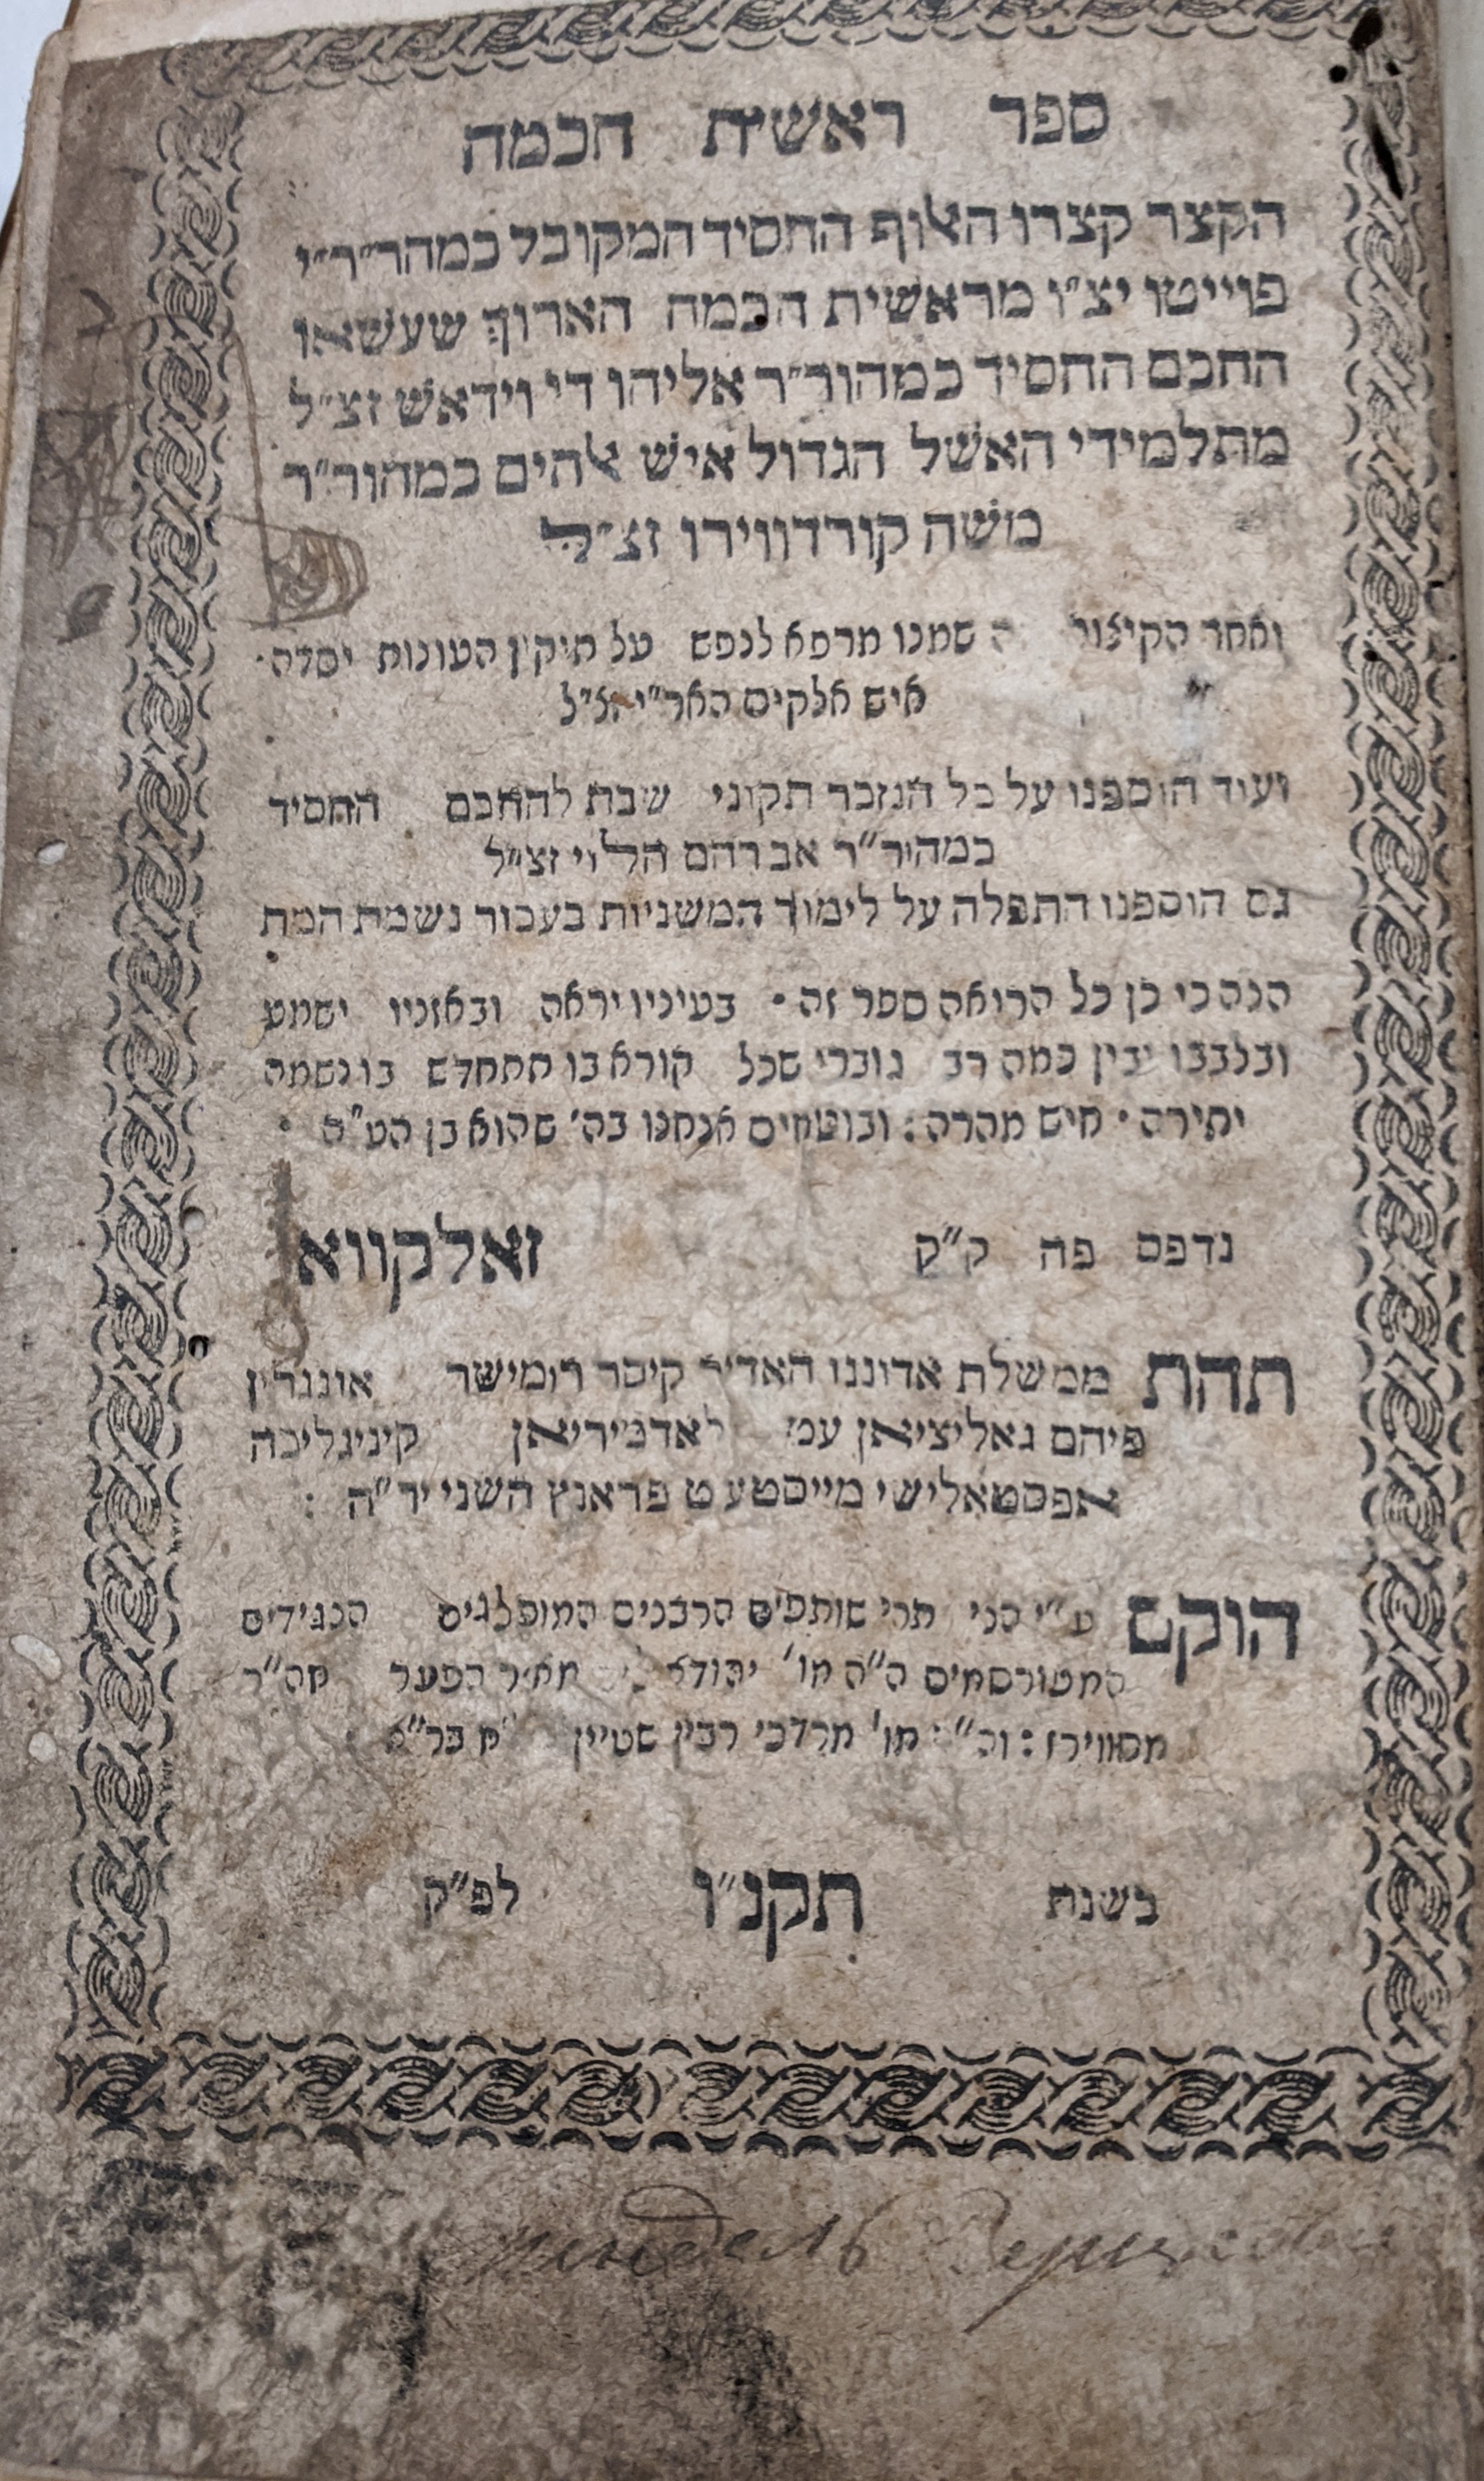 ספר ראשית חכמה
הקצר קצרו האלוף החסיד המקובל כמהר״ר״י
פוייטו יצ״ו מראשית חכמה הארוך שעשאו
החכם החסיד כמהור״ר אליהו די וידאש זצ״ל
מתלמידי האשל הגדול איש אלהים כמהור״ר
משה קורדווירו זצ״ל
ואחר הקיצור שמנו מרפא לנפש על תיקון העונות יסדה
איש אלקים האר״י זצ״ל
ועוד הוספנו על כל הנזכר תקוני שבת להחכם החסיד
כמהור״ר אברהם הלוי זצ״ל
גם הוספנו התפלה על לימוד המשניות בעבור נשמת המת
הנה כי כן כל הרואה ספר זה • בעיניו יראה ובאזניו ישמע
ובלבבו יבין כמה רב גוברי שכל קורא בו תתחדש בו נשמה
יתירה • חיש מהרה : ובוטחים אנחנו בה׳ שהוא בן הע״ה
נדפס פה ק״ק זאלקווא
תחת ממשלת אדוננו האדיר קיסר רומישר אונגרין
פיהם גאליציאן לאדמיריאן קיניגליכה
אפסטאלישי מייסטעט פראנץ השני יר״ה :
הוקם ע״י תרי שותפים הרבנים המופלגים הנגידים
המפורסמים ה״ה מו׳ יהודא מאיר הפער מה״ר
מסווירז : מו׳ מרדכי רבין שטיין
בשנת תקנ״ו לפ״ק